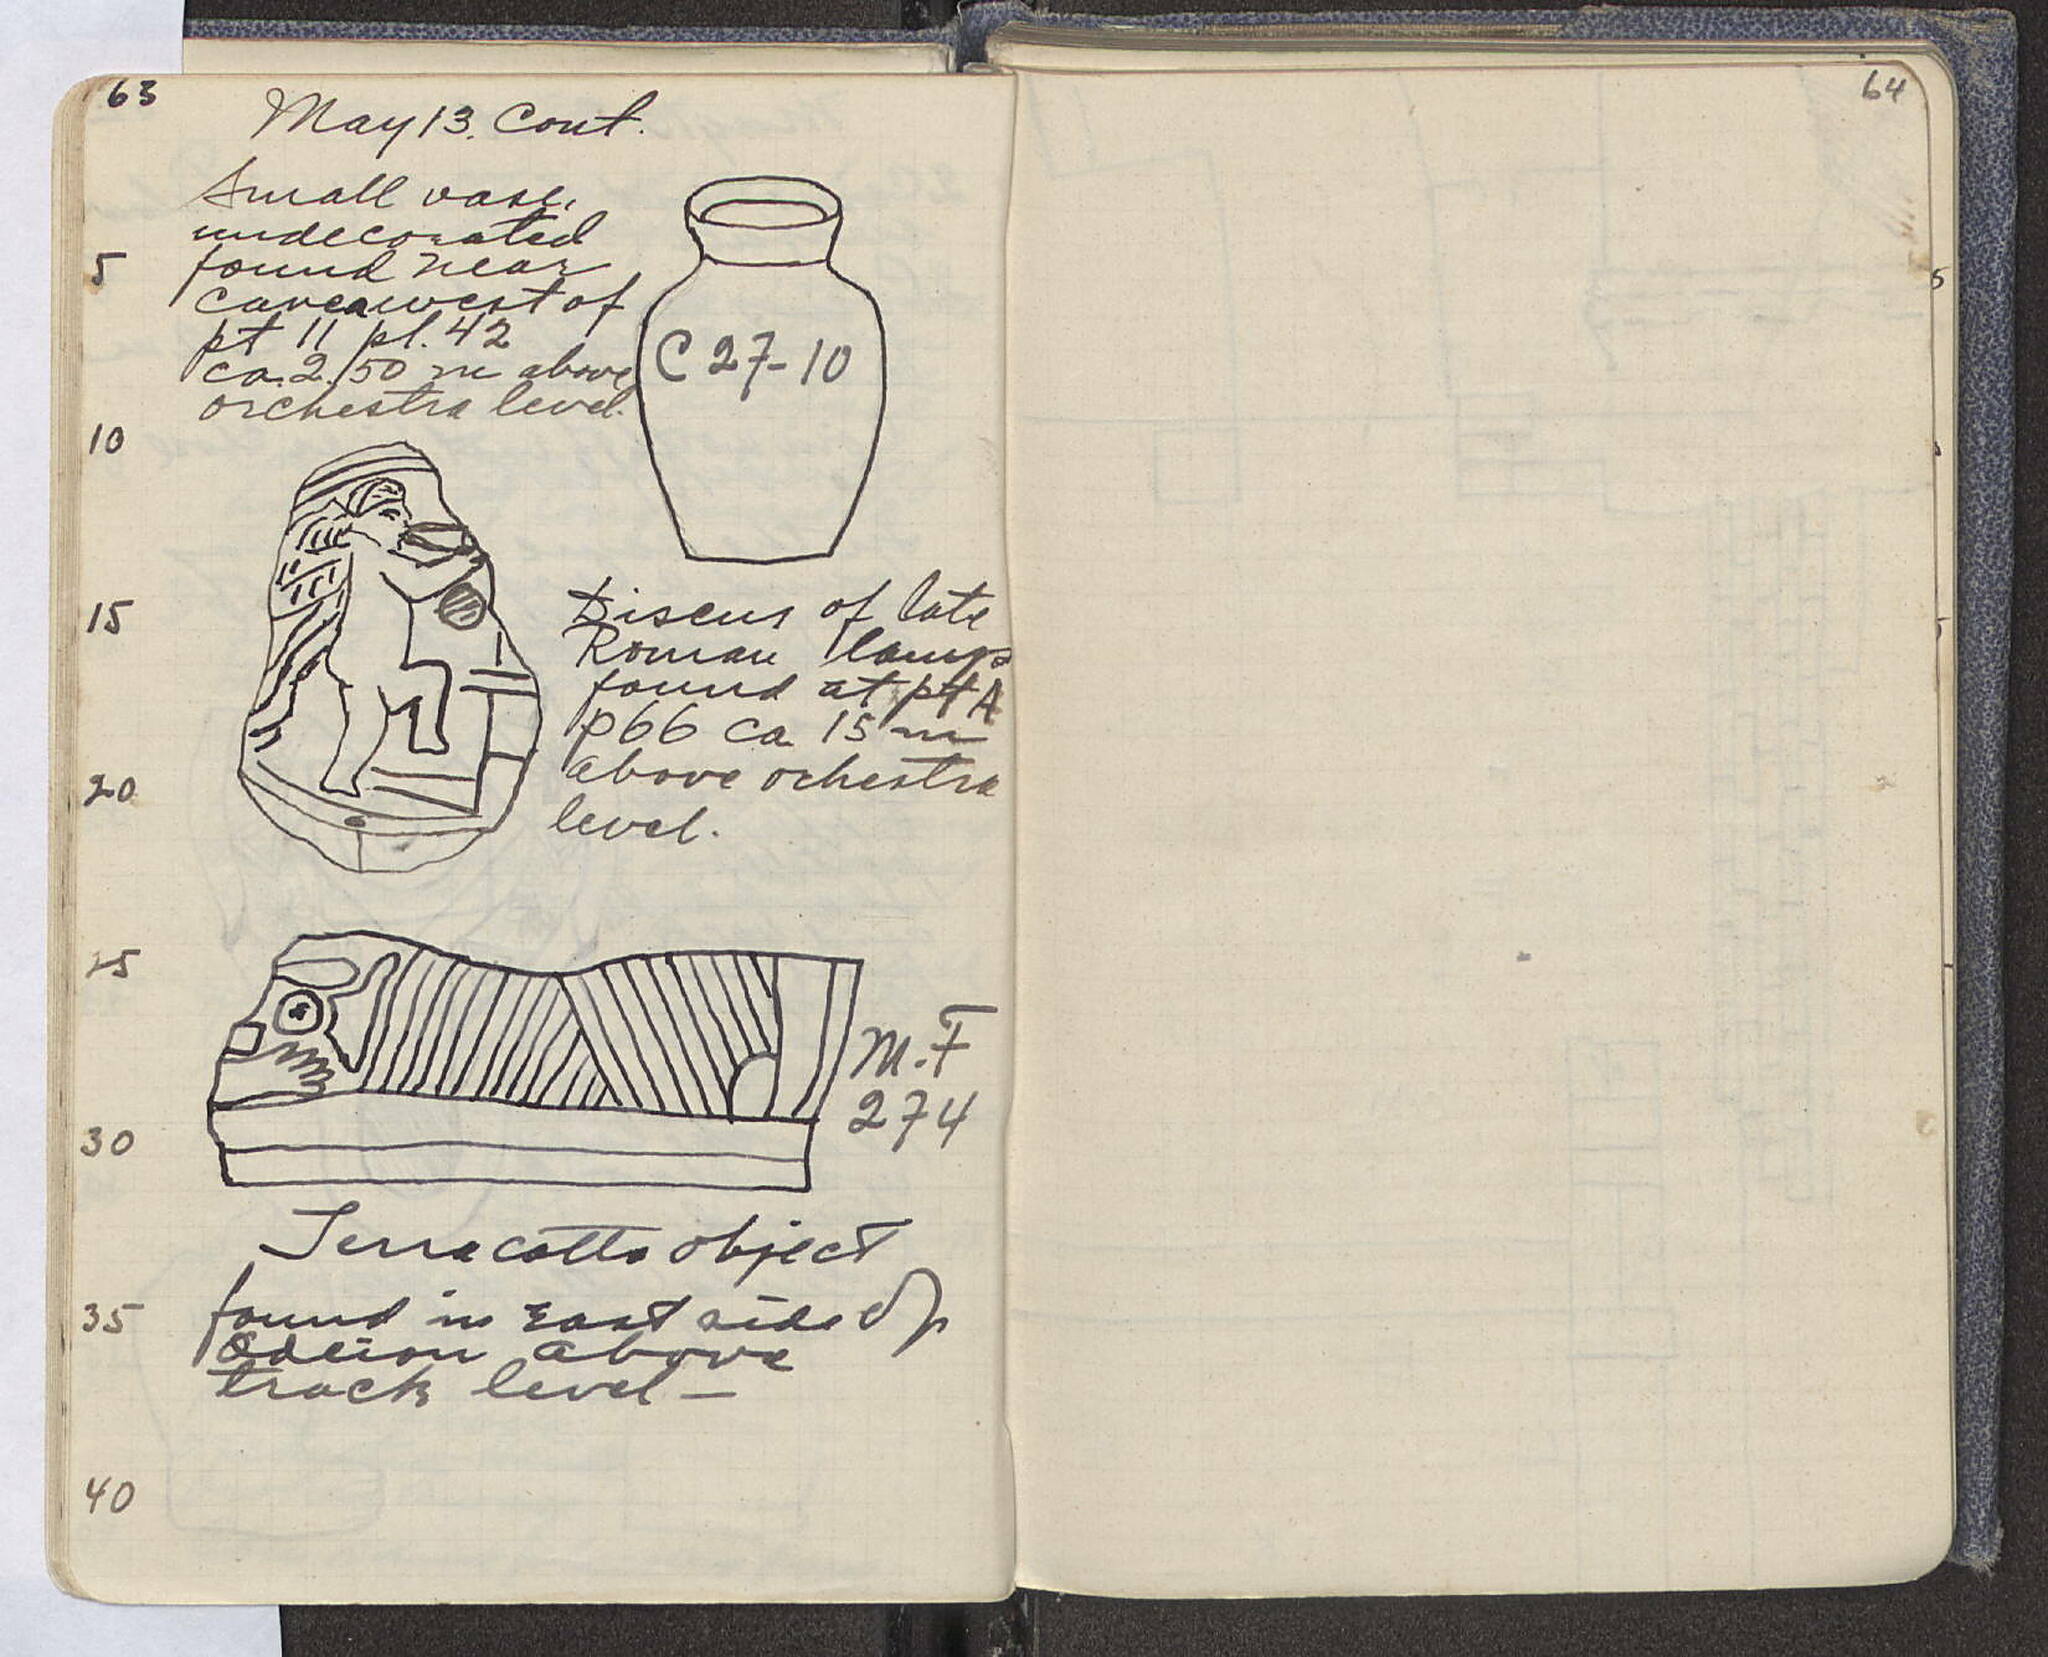 63
May 13. Cont.
Small vase,
undecorated
found near
cavea west of
pt 11 pl. 42
ca. 2.50 m above
orchestra level.
C 27-10
5
10
15
20
25
30
35
40
Discus of late
Roman lamp
found at pt A
p66 ca 15 m
above ochestra
level.
M.F
274
Terracotta object
found in East side of
Odeion above
track level -
64
5